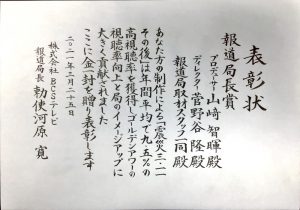 表彰状
報道局長賞
プロデューサー 山﨑智暉殿
ディレクター 菅野谷隆殿
報道局取材スタッフ一同殿
あなた方の制作による「震災三・一一
その後」は年間平均で九・五%の
高視聴率を獲得しゴールデンアワーの
視聴率向上と局のイメージアップに
大きく貢献されました
ここに金一封を贈り表彰します
二〇二一年三月二十五日
株式会社 BCSテレビ
報道局長 勅使河原 寛